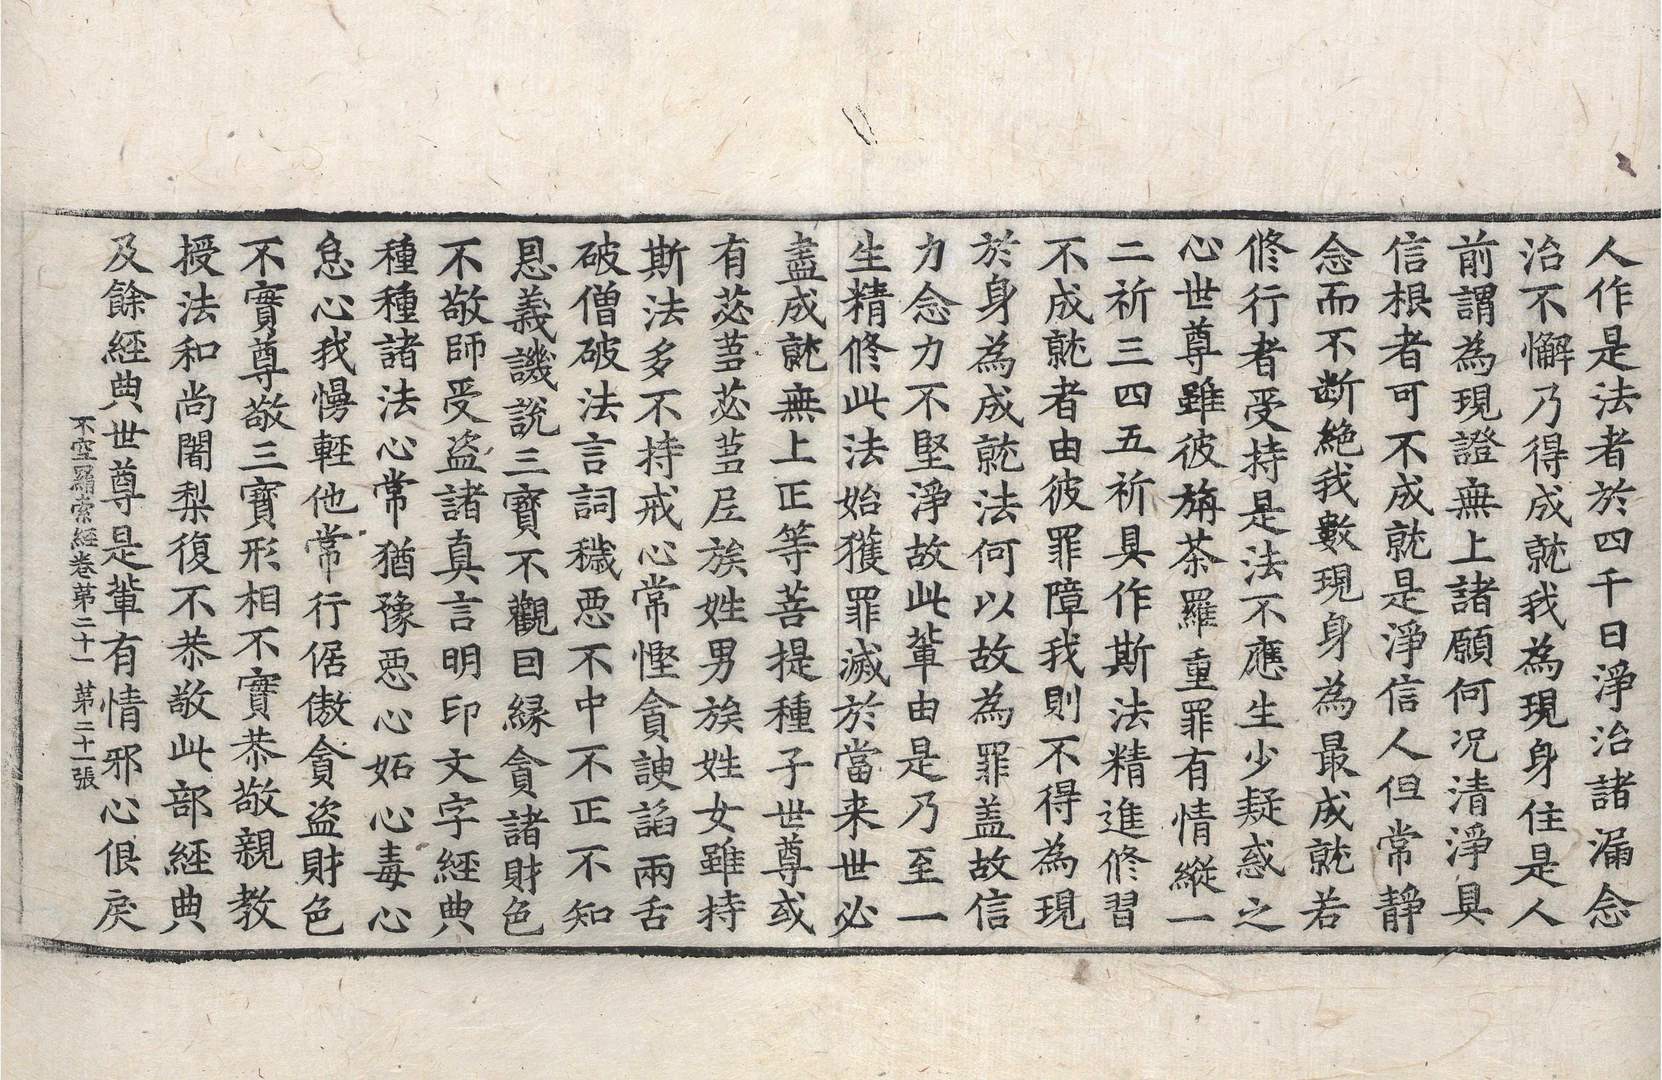 人作是法者於四千日淨治諸漏念
治不懈乃得成就我為現身住是人
前謂為現證無上諸願何況清淨具
信根者可不成就是淨信人但常靜
念而不断絶我數現身為最成就若
修行者受持是法不應生少疑惑之
心世尊雖彼旃荼羅重罪有情縱一
二祈三四五祈具作斯法精進修習
不成就者由彼罪障我則不得為現
於身為成就法何以故為罪盖故信
力念力不堅淨故此輩由是乃至一
生精修此法始獲罪滅於當来世必
盡成就無上正等菩提種子世尊或
有苾蒭苾蒭尼族姓男族姓女雖持
斯法多不持戒心常慳貪諛謟兩舌
破僧破法言詞穢惡不中不正不知
恩義譏說三寶不觀因緣貪諸財色
不敬師受盗諸真言明印文字經典
種種諸法心常猶豫惡心妬心毒心
怠心我慢輕他常行倨傲貪盗財色
不實尊敬三寶形相不實恭敬親教
授法和尚闍梨復不恭敬此部經典
及餘經典世尊是輩有情邪心佷戾
不空羂索經卷第二十一 第二十一張